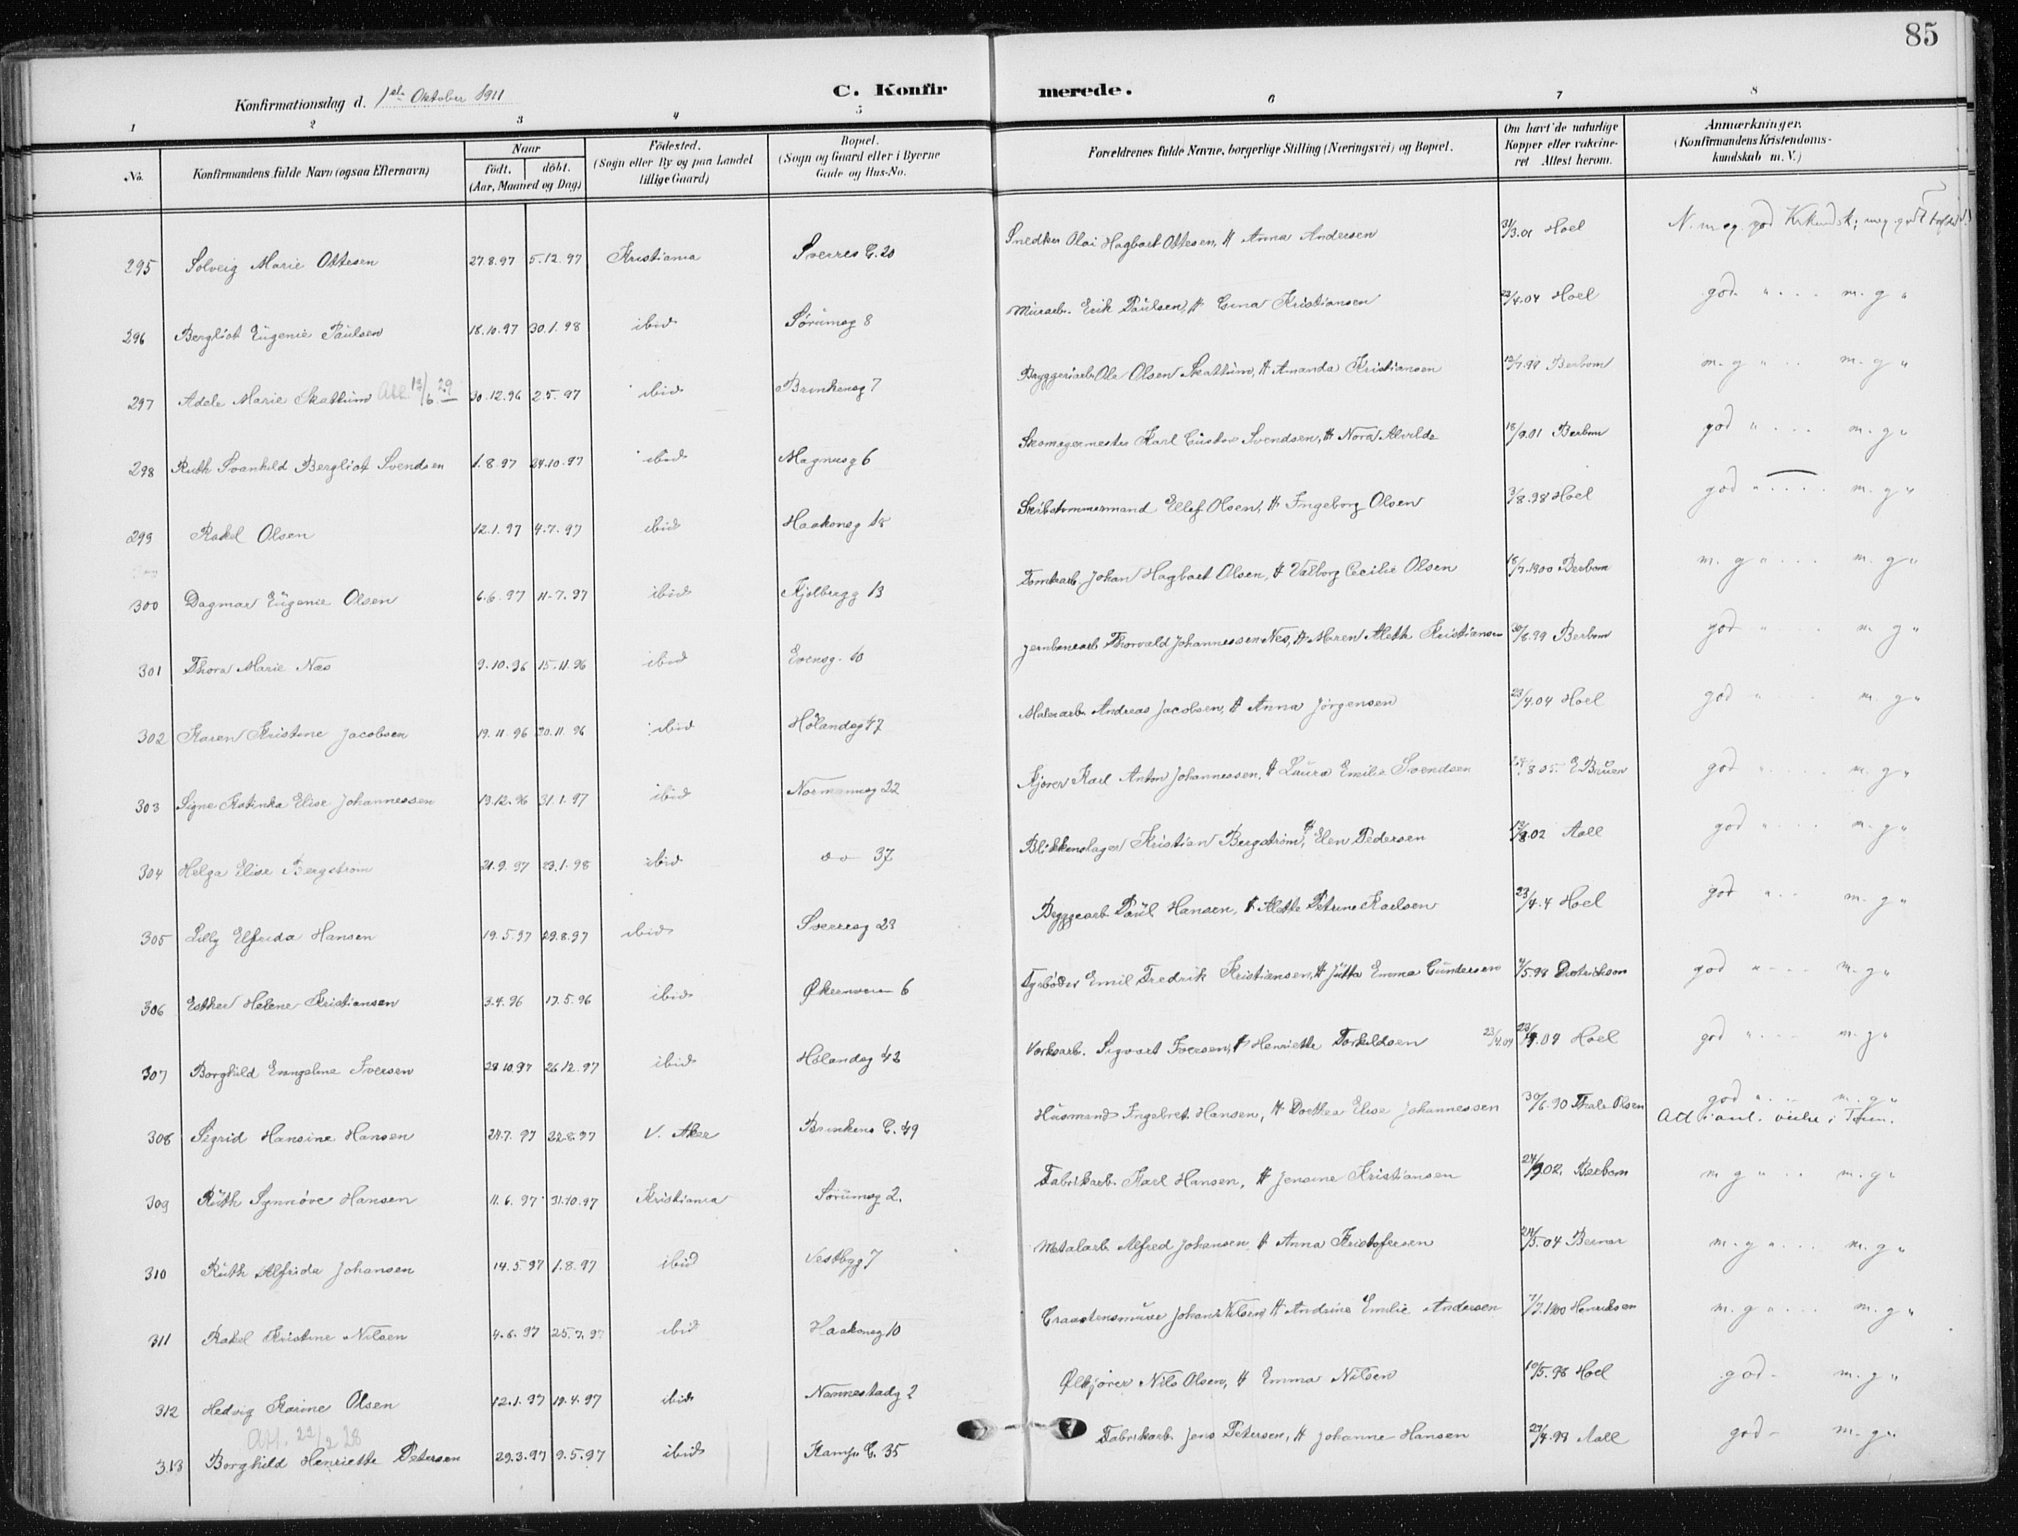 85
Konfirmationsdag d. 1ste Oktober 1911
C. Konfirmerede.
1 2 3 4 5 6 7 8
No.
Konfirmandens fulde Navn (ogsaa Efternavn)
Naar
født. døbt.
(Aar, Maaned og Dag)
Fødested.
(Sogn eller By og paa Landet
tillige Gaard)
Bopæl.
(Sogn og Gaard eller i Byerne
Gade og Hus-No.
Forældrenes fulde Navne, borgerlige Stilling (Næringsvei) og Bopæl.
Om havt de naturlige
Kopper eller vakcine-
ret Attest herom.
Anmærkninger.
(Konfirmandens Kristendoms-
kundskab m. V.)
295 Solveig Marie Ottesen 27.8.97 5.12.97 Kristiania Sverres G. 20 Snedker Olai Hagbart Ottesen, H Anna Andersen 31/3.01 Hoel
296 Bergliot Eugenie Paulsen 18.10.97 30.1.98 ibid Sørumsg 8 Murarb. Erik Paulsen, H Gina Kristiansen 23/4.04 Hoel god " m. g "
297 Adele Marie Skattum Att. 12/6 29 30.12.96 2.5.97 ibid Brinkensg 7 Bryggeriarb. Ole Olsen Skattum, H Amanda Kristiansen 12/7.99 Berbom m. g " m. g "
298 Ruth Svanhild Bergliot Svendsen 1.8.97 24.10.97 ibid Magnusg 6 Skomagermester Karl Gustav Svendsen, H Nora Alvilde 18/9.01 Berbom god " m. g "
299 Rakel Olsen 12.1.97 4.7.97 ibid Haakonsg 18 Skibstømmermand Ellef Olsen, H Ingeborg Olsen 3/8.98 Hoel god " m. g "
300 Dagmar Eugenie Olsen 6.6.97 11.7.97 ibid Kjølbergg 13 Tomtearb. Johan Hagbart Olsen, H Valborg Cecilie Olsen 18/7.1900 Berbom m. g " m. g "
301 Thora Marie Næs 9.10.96 15.11.96 ibid Evensg. 10 Jernbanearb Thorvald Johannessen Nes, H Maren Aleth Kristiansen 30/6.99 Berbom god m. g "
302 Karen Kristine Jacobsen 19.11.96 20.11.96 ibid Hølandsg 47 Malerarb. Andreas Jacobsen, H Anna Jørgensen 23/4.04 Hoel god " m. g "
303 Signe Katinka Elise Johannessen 13.12.96 31.1.97 ibid Normannsg 22 Kjører Karl Anton Johannessen, H Laura Emilie Svendsen 8 05. E Bruun god " m. g "
304 Helga Elise Bergstrøm 21.9.97 23.1.98 ibid do 37 Blikkenslager Kristian Bergstrøm, H Elen Pedersen 12/8.02 Aall god " m. g "
305 Lilly Elfrida Hansen 19.5.97 29.8.97 ibid Sverresg 23 Byggearb Paul Hansen, H Alette Petrine Karlsen 23/4.4 Hoel god " m. g "
306 Esther Helene Kristiansen 3.4.96 17.5.96 ibid Økernveien 6 Dybøder Emil Fredrik Kristiansen, H Jütta Emma Gundersen /5.98 Dietrichson god " m. g "
307 Borghild Evangeline Iversen 28.10.97 26.12.97 ibid Hølandsg 43 Verksarb. Sigvart Iversen, H Henriette Torkildsen 23/4.04 23/4.04 Hoel god " m. g "
308 Sigrid Hansine Hansen 24.7.97 22.8.97 V. Aker Brinkens G. 49 Husmand Ingebret Hansen, H Dorthea Elise Johannessen 30/6.90 Thale Olsen god " m. g "
309 Ruth Synnøve Hansen 11.6.97 31.10.97 Kristiania Sørumsg 2. Fabrikarb. Karl Hansen, H Jensine Kristiansen 24/9.02. Berbom m g " m. g "
310 Ruth Alfrida Johansen 14.5.97 1.8.97 ibid Vestbyg 7 Metalarb Alfred Johansen H Anna Kristofersen 24/5.04 Berner m. g " m. g "
311 Rakel Kristine Nilsen 4.6.97 25.7.97 ibid Haakonsg 10 Graastensmurer Johan Nilsen, H Andrine Emilie Andersen 7/7.1900 Henriksen m. g " m. g "
312 Hedvig Karine Olsen 12.1.97 19.4.97 ibid Nannestadg 2 Ølkjører Nils Olsen, H Emma Nilsen 10/5.98 Hoel god - m. g "
Att. 22/2 28
313 Borghild Henriette Petersen 29.3.97 9.5.97 ibid Kamp G. 35 Fabrikarb. Jens Petersen, H Johanne Hansen 27/4.99 Aall god - m. g "